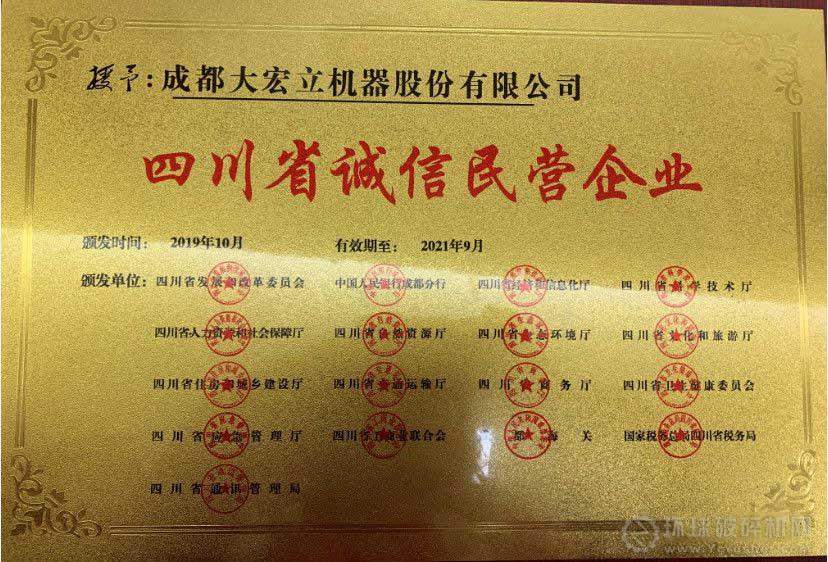 授予：成都大宏立机器股份有限公司
四川省诚信民营企业
颁发时间： 2019年10月 有效期至： 2021年9月
颁发单位： 四川省发展和改革委员会 中国人民银行成都分行 四川省经济和信息化厅 四川省科学技术厅
四川省人力资源和社会保障厅 四川省自然资源厅 四川省生态环境厅 四川省文化和旅游厅
四川省住房和城乡建设厅 四川省交通运输厅 四川省商务厅 四川省卫生健康委员会
四川省应急管理厅 四川省工商业联合会 都海关 国家税务总局四川省税务局
四川省通讯管理局
环球破碎机网